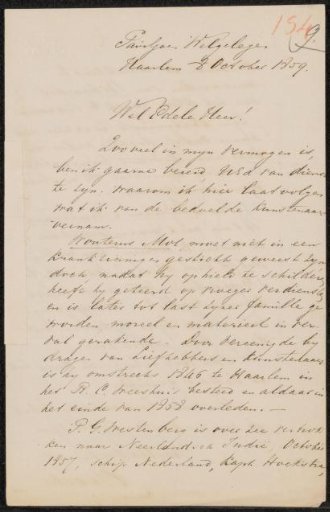 154
9.
Paviljoen Welgelegen
Haarlem 8 October 1859.
Wel Edele Heer!
Zooveel in myn vermogen is,
ben ik gaarne bereid UEd van dienst
te zyn. waarom ik hier laat volgen
wat ik van de bedoelde kunstenaars
vernam.
Wouterus Mol, moet niet in een
krankzinnigen gesticht geweest zyn
doch nadat hy ophield te schilderen
heeft hy geteerd op vroegere verdiensten
en is later tot last zyner familie ge
worden, moreel en materieel in ver
val gerakende. Door vereenigde by
dragen van Liefhebbers en Kunstenaars
is hy omstreeks 1846 te Haarlem in
het R. C. Weeshuis besteed en aldaar in
het einde van 1858 overleden. —
P. G. Westenberg is over zee vertrok
ken naar Neerlandsch Indie, October
1857, schip Nederland, Kapt Hoekstra,